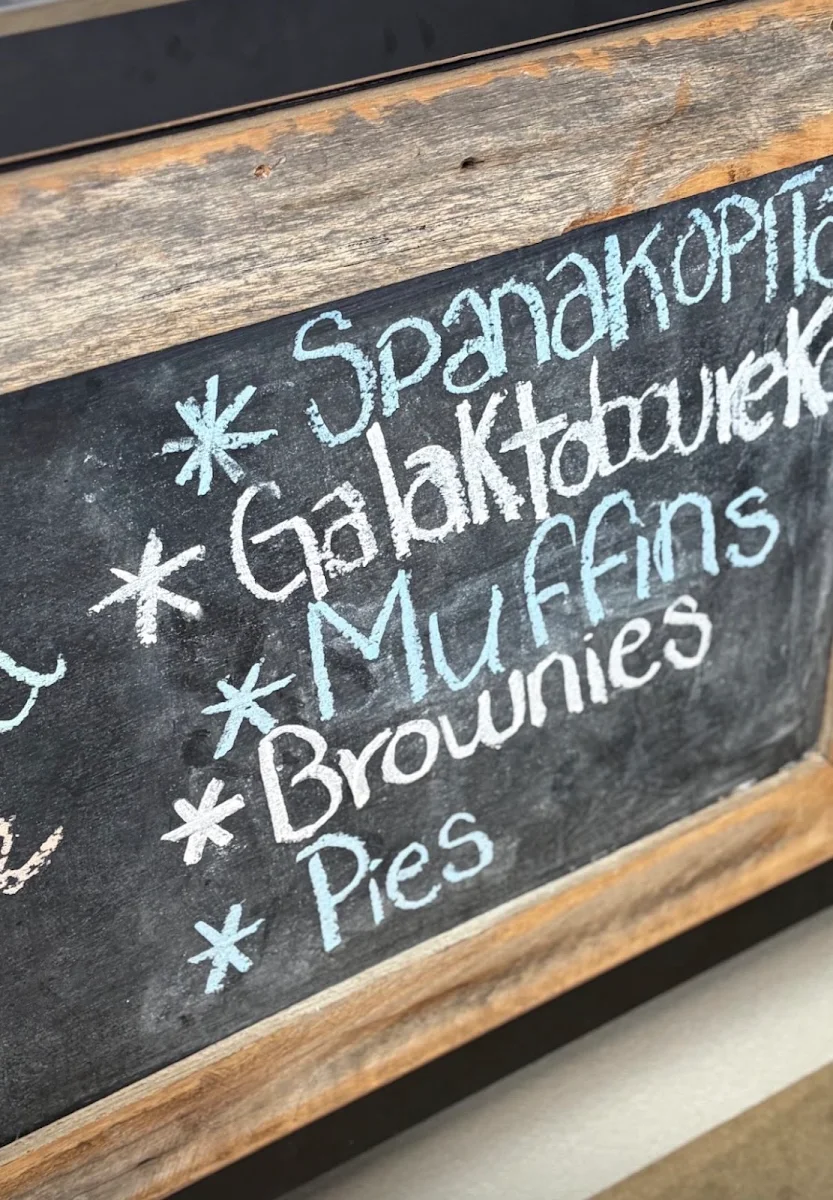 * Spanakopita
* Galaktoboureka
* Muffins
* Brownies
* Pies